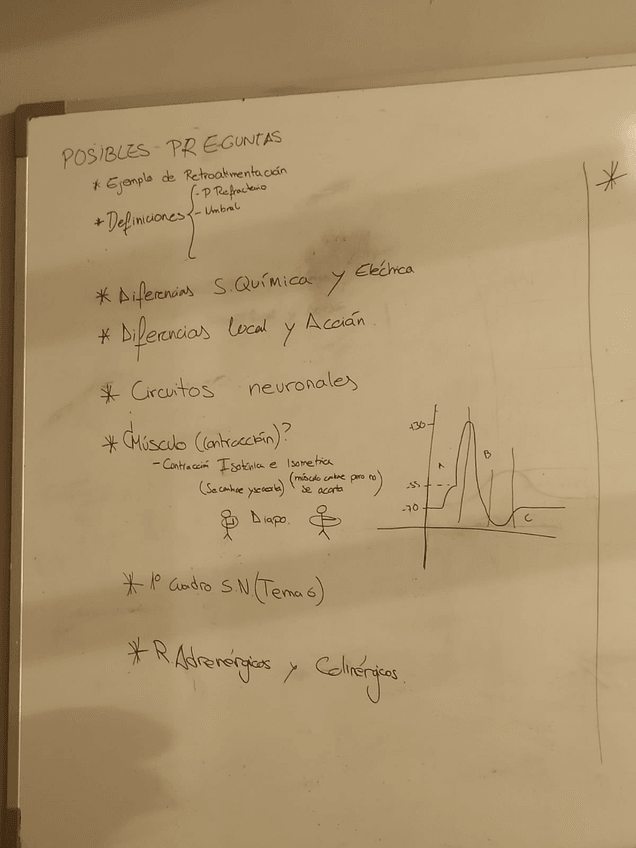 POSIBLES PREGUNTAS
* Ejemplo de Retroalimentación
* Definiciones { - P. Refractario
- Umbral
* Diferencias S. Química y Eléctrica
* Diferencias Local y Acción
* Circuitos neuronales
* ¿Músculo (Contracción)?
- Contracción Isotónica e Isometrica
(músculo pero no
se acorta)
Diapo.
+30
-55
-70
A
B
C
* 1º Cuadro S.N. (Tema 6)
* R Adrenérgicos y Colinérgicos.
*